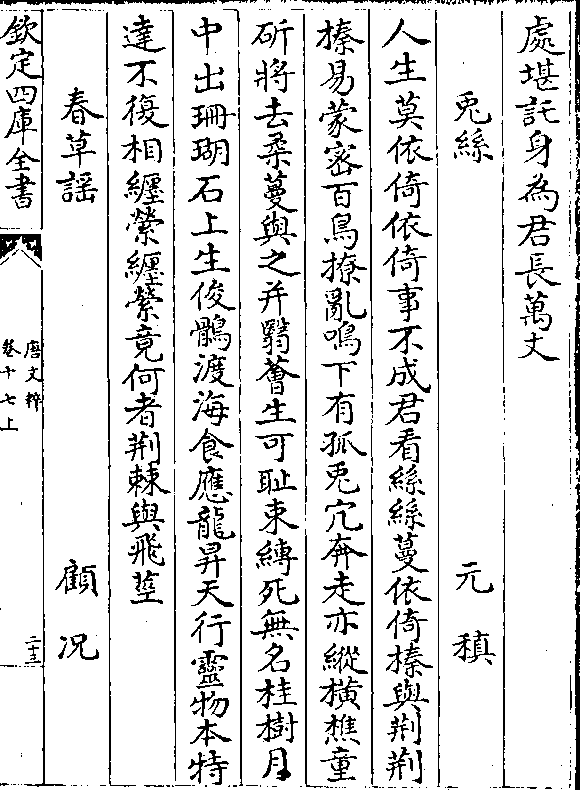 處堪託身為君長萬丈
兎絲 元稹
人生莫依倚依倚事不成君看絲絲蔓依倚榛與荆荆
榛易蒙宻百鳥撩亂鳴下有狐兎穴奔走亦縱横樵童
斫將去柔蔓與之并翳薈生可耻束縛死無名桂樹月
中出珊瑚石上生俊鶻渡海食應龍昇天行靈物本特
達不復相纒縈纒縈竟何者荆棘與飛莖
春草謡 顧况
欽定四庫全書
唐文粹
卷十七上
二十三